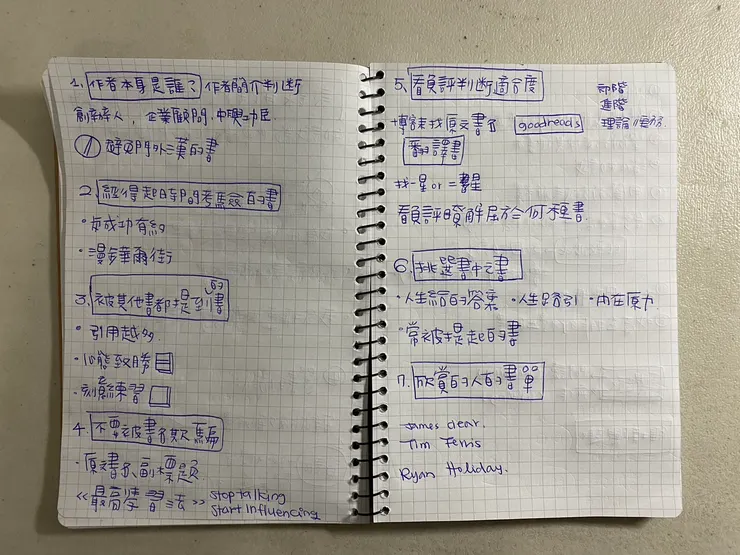 1. 作者本身是誰？作者簡介判斷
創辦人，企業顧問，中興功臣
避免門外漢的書
2. 經得起時間考驗的書
·與成功有約
·漫步華爾街
3. 被其他書都提到的書
·引用越多
·心態致勝
·刻意練習
4. 不要被書名欺騙
·原文書名、副標題
《最高學習法》stop talking
start influencing
5. 看負評判斷適合度
博客來找原文書名 goodreads
翻譯書
找一星 or 二星
看負評瞭解屬於何種書
初階
進階
理論//實務
6. 挑選書中之書
·人生給的答案 ·人生路引 ·內在原力
·常被提起的書
7. 欣賞的人的書單
James clear.
Tim Ferris
Ryan Holiday.